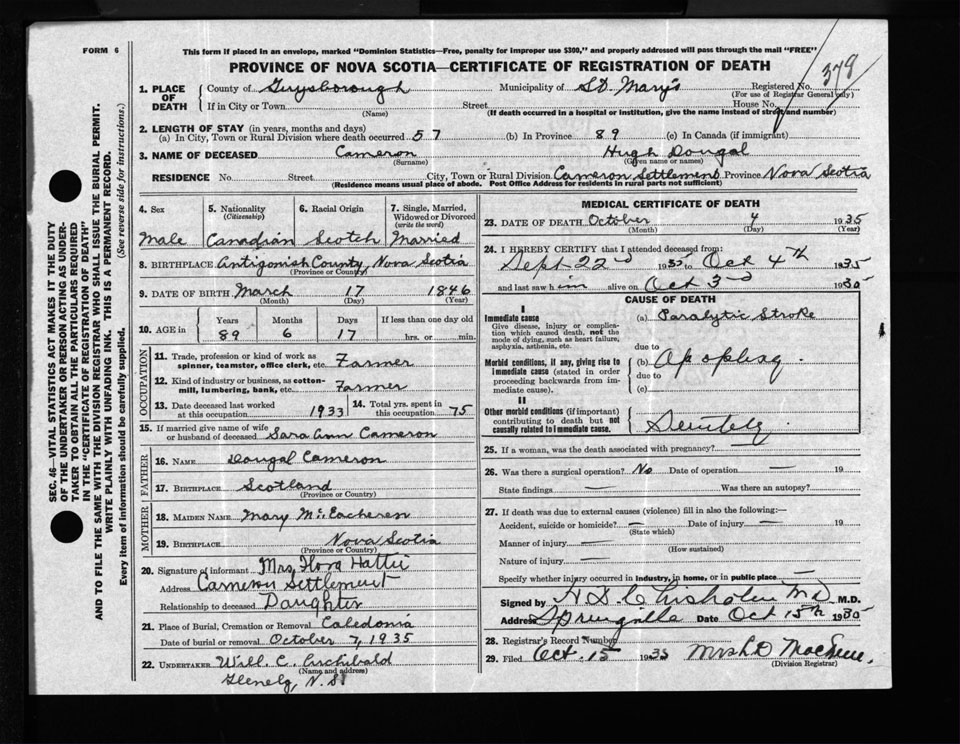 FORM 6
This form if placed in an envelope, marked "Dominion Statistics—Free, penalty for improper use $300," and properly addressed will pass through the mail "FREE"
PROVINCE OF NOVA SCOTIA—CERTIFICATE OF REGISTRATION OF DEATH
378
1. PLACE OF DEATH County of Guysborough Municipality of St. Mary's Registered No.
(For use of Registrar General only)
If in City or Town Street House No.
(Name) (If death occurred in a hospital or institution, give the name instead of street and number)
2. LENGTH OF STAY (in years, months and days)
(a) In City, Town or Rural Division where death occurred 57 (b) In Province 89 (c) In Canada (if immigrant)
3. NAME OF DECEASED Cameron Hugh Dougal
(Surname) (Given name or names)
RESIDENCE No. Street City, Town or Rural Division Cameron Settlement Province Nova Scotia
(Residence means usual place of abode. Post Office Address for residents in rural parts not sufficient)
4. Sex 5. Nationality (Citizenship) 6. Racial Origin 7. Single, Married, Widowed or Divorced (write the word)
Male Canadian Scotch Married
8. BIRTHPLACE Antigonish County, Nova Scotia
(Province or Country)
9. DATE OF BIRTH March 17 1846
(Month) (Day) (Year)
10. AGE in Years Months Days If less than one day old
89 6 17 hrs. or min.
OCCUPATION
11. Trade, profession or kind of work as spinner, teamster, office clerk, etc. Farmer
12. Kind of industry or business, as cotton-mill, lumbering, bank, etc. Farmer
13. Date deceased last worked at this occupation 1933 14. Total yrs. spent in this occupation 75
15. If married give name of wife or husband of deceased Sara Ann Cameron
FATHER
16. NAME Dougal Cameron
17. BIRTHPLACE Scotland
(Province or Country)
MOTHER
18. MAIDEN NAME Mary McEacheren
19. BIRTHPLACE Nova Scotia
(Province or Country)
20. Signature of informant Mrs. Flora Hattie
Address Cameron Settlement
Relationship to deceased Daughter
21. Place of Burial, Cremation or Removal Caledonia
Date of burial or removal October 7, 1935
22. UNDERTAKER Will. C. Archibald
(Name and address)
Glenelg, N. S.
MEDICAL CERTIFICATE OF DEATH
23. DATE OF DEATH October 4 1935
(Month) (Day) (Year)
24. I HEREBY CERTIFY that I attended deceased from:
Sept 22nd 1935 to Oct 4th 1935
and last saw him alive on Oct 3rd 1935
CAUSE OF DEATH
I
Immediate cause
Give disease, injury or complication which caused death, not the mode of dying, such as heart failure, asphyxia, asthenia, etc.
(a) Paralytic Stroke
due to
Morbid conditions, if any, giving rise to immediate cause (stated in order proceeding backwards from immediate cause).
(b) Apoplexy
due to
(c)
II
Other morbid conditions (if important) contributing to death but not causally related to immediate cause.
Senility
25. If a woman, was the death associated with pregnancy?
26. Was there a surgical operation? No Date of operation — 19
State findings — Was there an autopsy?
27. If death was due to external causes (violence) fill in also the following:—
Accident, suicide or homicide? — Date of injury — 19
(State which)
Manner of injury —
(How sustained)
Nature of injury —
Specify whether injury occurred in industry, in home, or in public place —
Signed by H D Chisholm M.D. M.D.
Address Springville Date Oct 15th 1935
28. Registrar's Record Number
29. Filed Oct. 15 1935 Mrs H. D
(Division Registrar)
SEC. 46—VITAL STATISTICS ACT MAKES IT THE DUTY
OF THE UNDERTAKER OR PERSON ACTING AS UNDER-
TAKER TO OBTAIN ALL THE PARTICULARS REQUIRED
IN THE "CERTIFICATE OF REGISTRATION OF DEATH"
AND TO FILE THE SAME WITH THE DIVISION REGISTRAR WHO SHALL ISSUE THE BURIAL PERMIT.
WRITE PLAINLY WITH UNFADING INK. THIS IS A PERMANENT RECORD.
Every item of information should be carefully supplied. (See reverse side for instructions.)